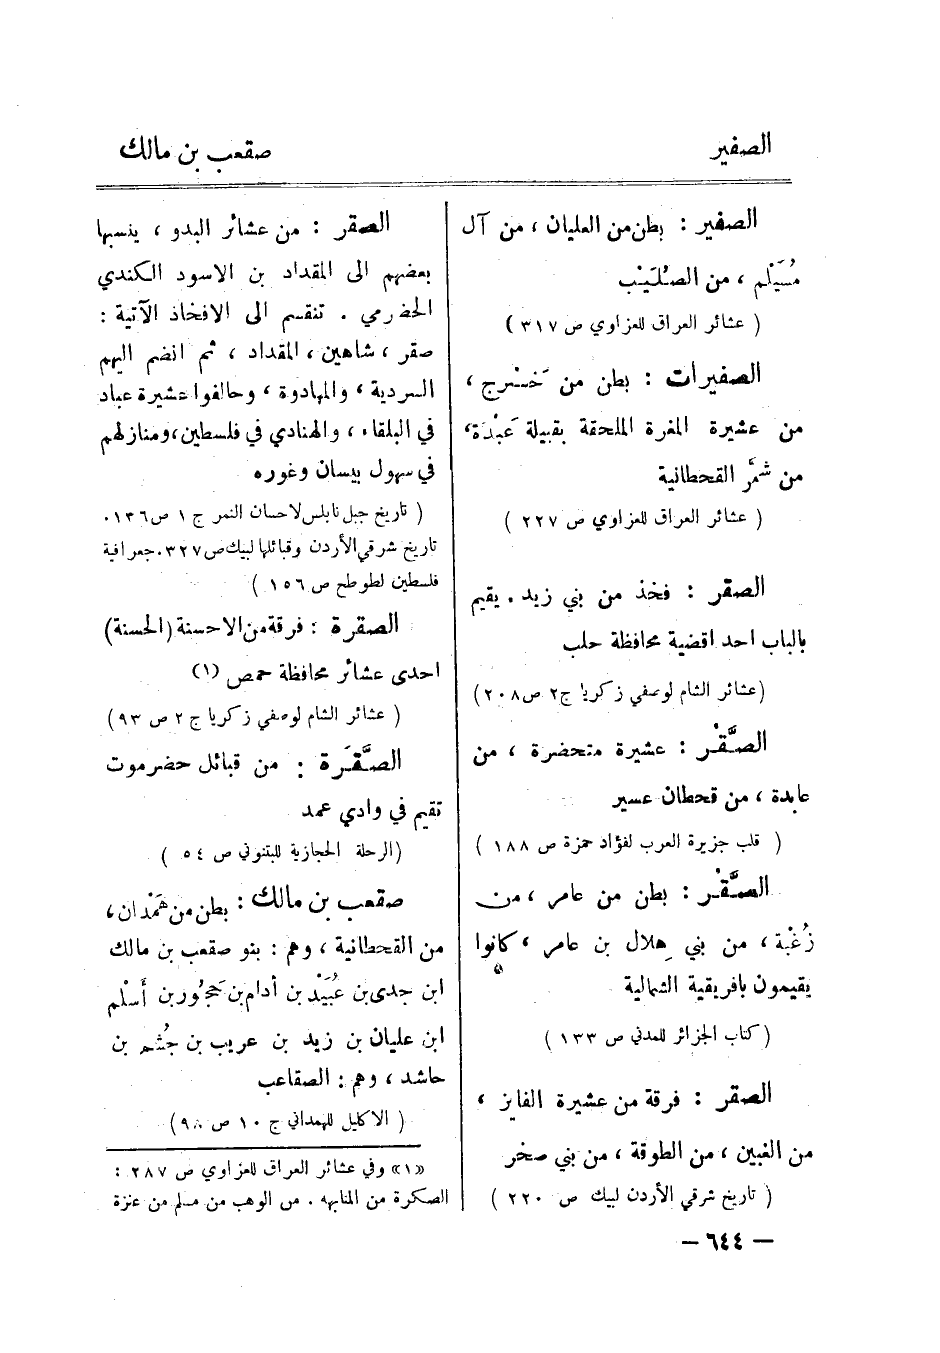 الصفير
صقعب بن مالك
الصفير : بطن من العليان ، من آل
مُسَيْلم ، من الصُلَيْب
( عشائر العراق للعزاوي ص ٣١٧ )
الصفيرات : بطن من خَسْرج ،
من عشيرة المغرة الملحقة بقبيلة عَبْدَة ،
من شَمَّر القحطانية
( عشائر العراق للعزاوي ص ٢٢٧ )
الصقر : فخذ من بني زيد . يقيم
بالباب احد اقضية محافظة حلب
( عشائر الشام لوصفي زكريا ج٢ ص٢٠٨ )
الصَّقْر : عشيرة متحضرة ، من
عابدة ، من قحطان عسير
( قلب جزيرة العرب لفؤاد حمزة ص ١٨٨ )
الصَّقْر : بطن من عامر ، من
زُغْبة ، من بني هِلال بن عامر ، كانوا
يقيمون بافريقية الشمالية
( كتاب الجزائر للمدني ص ١٣٣ )
الصقر : فرقة من عشيرة الفايز ،
من الغبين ، من الطوقة ، من بني صخر
( تاريخ شرقي الأردن لبيك ص ٢٢٠ )
الصقر : من عشائر البدو ، ينسبها
بعضهم الى المقداد بن الاسود الكندي
الحضرمي . تنقسم الى الافخاذ الآتية :
صقر ، شاهين ، المقداد ، ثم انضم اليهم
السردية ، والمهادوة ، وحالفوا عشيرة عباد
في البلقاء ، والهنادي في فلسطين ، ومنازلهم
في سهول بيسان وغوره
( تاريخ جبل نابلس لاحسان النمر ج ١ ص١٣٦ .
تاريخ شرقي الأردن وقبائلها لبيك ص ٣٢٧ . جعرافية
فلسطين لطوطح ص ١٥٦ )
الصقرة : فرقة من الاحسنة (الحسنة)
احدى عشائر محافظة حمص (١)
( عشائر الشام لوصفي زكريا ج ٢ ص ٩٣ )
الصَّقَرَة : من قبائل حضرموت
تقيم في وادي عمد
(الرحلة الحجازية للبتنوني ص ٥٤ )
صقعب بن مالك : بطن من هَمْدان ،
من القحطانية ، وهم : بنو صقعب بن مالك
ابن جدى بن عُبَيْد بن أدام بن حَجُور بن أَسْلم
ابن عليان بن زيد بن عريب بن جُشَم بن
حاشد ، وهم : الصقاعب
( الاكليل للهمداني ج ١٠ ص ٩٨)
«١» وفي عشائر العراق للعزاوي ص ٢٨٧ :
الصكرة من المنابهه . من الوهب من مسلم من عنزة
— ٦٤٤ —